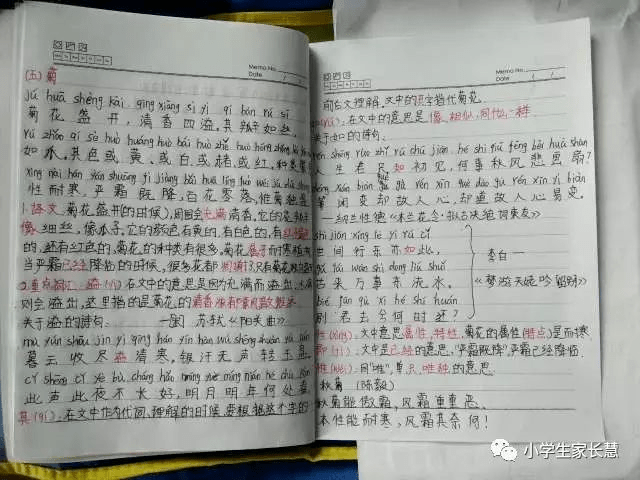 Memo No.
Date
(五)菊
jú huā shèng kāi, qīng xiāng sì yì, qí bàn rú sī
菊花盛开,清香四溢,其瓣如丝,
如水,其色或黄、或白、或赭、或红,种类繁
xìng nài hán yán shuāng jì jiàng bǎi huā líng luò wéi jú
性耐寒,严霜既降,百花零落,惟菊独盛
1.译文:菊花盛开(的时候),周围会充满清香,它的花瓣
像细丝,像瓜子,它的颜色有黄的,有白的,有
的,还有红色的,菊花的种类有很多,菊花属于耐寒植
当严霜已经降临的时候,很多花都凋谢了,只有菊花
2.重点词汇:溢(yì):在文中的意思是因为充满而溢出
则会溢出,这里指的是菊花的清香
关于溢的诗句: 苏轼《阳关曲》
mù yún shōu jìn yì qīng hán yín hàn wú shēng zhuǎn yù pán
暮云收尽溢清寒,银汉无声转玉盘。
cǐ shēng cǐ yè bù cháng hǎo míng yuè míng nián hé chù kàn
此生此夜不长好,明月明年何处看。
其(qí):在文中作为代词,理解的时候,要根据这个字的
Memo No.
Date
前后文理解,文中的其字指代菊花。
在文中的意思是像、相似、同什么一样
关于如的诗句:
rén shēng ruò zhǐ rú chū jiàn hé shì qiū fēng bēi huà shàn
人生若只如初见,何事秋风悲画扇?
děng xián biàn què gù rén xīn què dào gù rén xīn yì biàn
等闲变却故人心,却道故人心易变。
—纳兰性德《木兰花令·拟古决绝词柬友》
shì jiān xíng lè yì rú cǐ
世间行乐亦如此,
gǔ lái wàn shì dōng liú shuǐ
古来万事东流水。
bié jūn qù xī hé shí huán
别君去兮何时还?
李白—
《梦游天姥吟留别》
性(xìng):文中意思属性,特性。菊花的属性(特点)是耐寒
既(jì):文中是已经的意思,“严霜既降”,严霜已经降临
惟(wéi):同“唯”,单只,唯独的意思
秋菊 (陈毅)
秋菊能傲霜,风霜重重恶。
本性能耐寒,风霜其奈何!
小学生家长慧